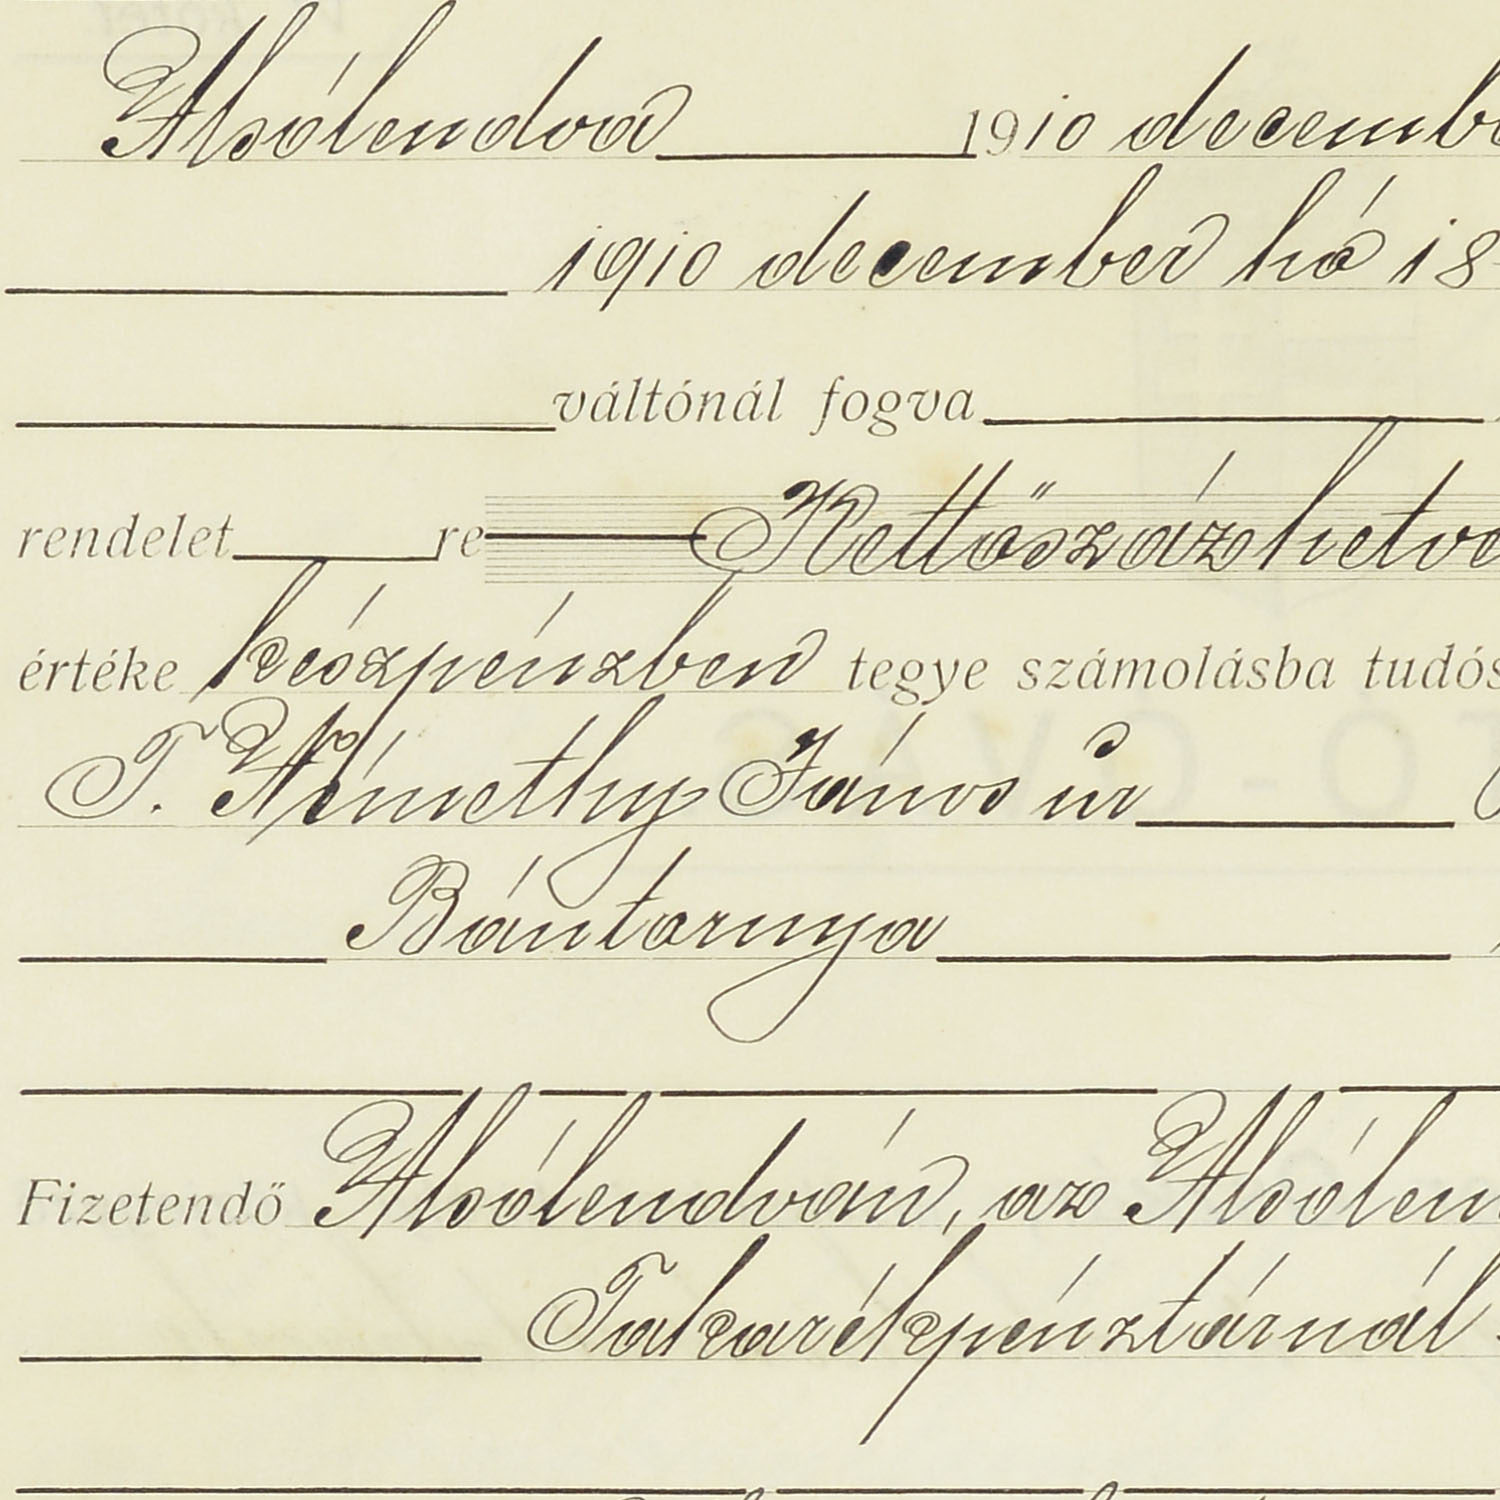 Alsólendva 1910 decemb
1910 december hó 18
váltónál fogva
rendelet re Kettőszázhetve
értéke készpénzben tegye számolásba tudós
T. Némethy János úr
Bántornya
Fizetendő Alsólendván, az Alsólen
Takarékpénztárnál